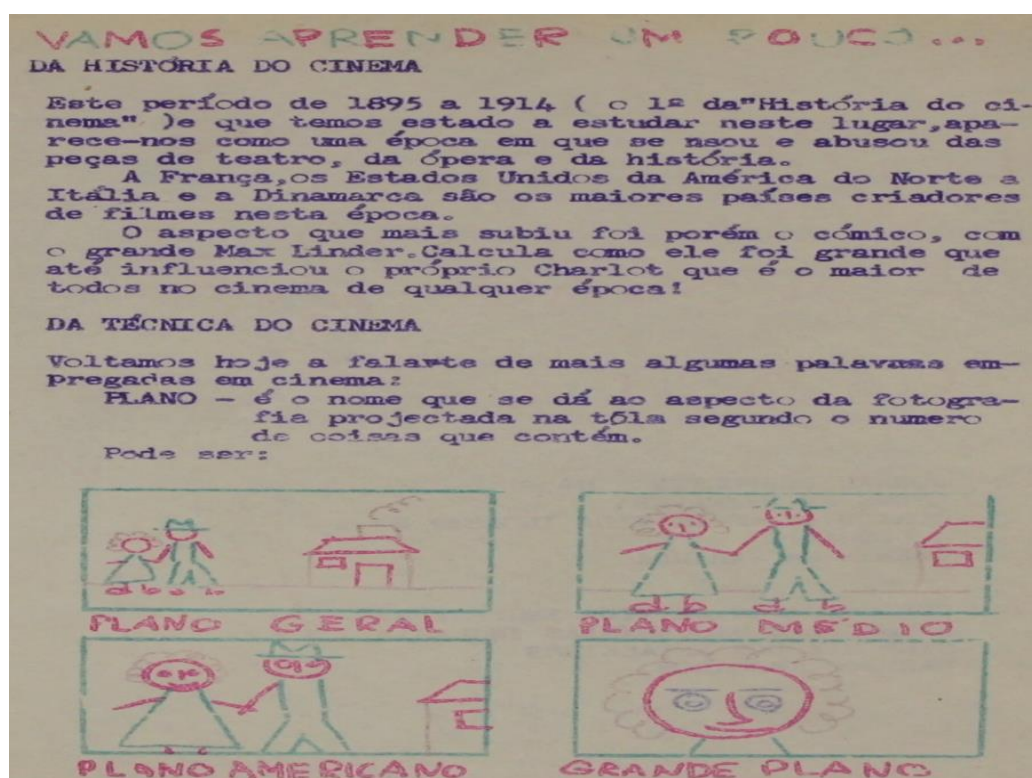 VAMOS APRENDER UM POUCO...
DA HISTÓRIA DO CINEMA
Este período de 1895 a 1914 ( o 1º da"História do ci-
nema" )e que temos estado a estudar neste lugar,apa-
rece-nos como uma época em que se nsou e abusou das
peças de teatro, da ópera e da história.
A França,os Estados Unidos da América do Norte a
Itália e a Dinamarca são os maiores países criadores
de filmes nesta época.
O aspecto que mais subiu foi porém o cómico, com
o grande Max Linder.Calcula como ele foi grande que
até influenciou o próprio Charlot que é o maior de
todos no cinema de qualquer época!
DA TÉCNICA DO CINEMA
Voltamos hoje a falarte de mais algumas palavras em-
pregadas em cinema:
PLANO - é o nome que se dá ao aspecto da fotogra-
fia projectada na têla segundo o numero
de coisas que contém.
Pode ser:
PLANO GERAL
PLANO MÉDIO
PLANO AMERICANO
GRANDE PLANO